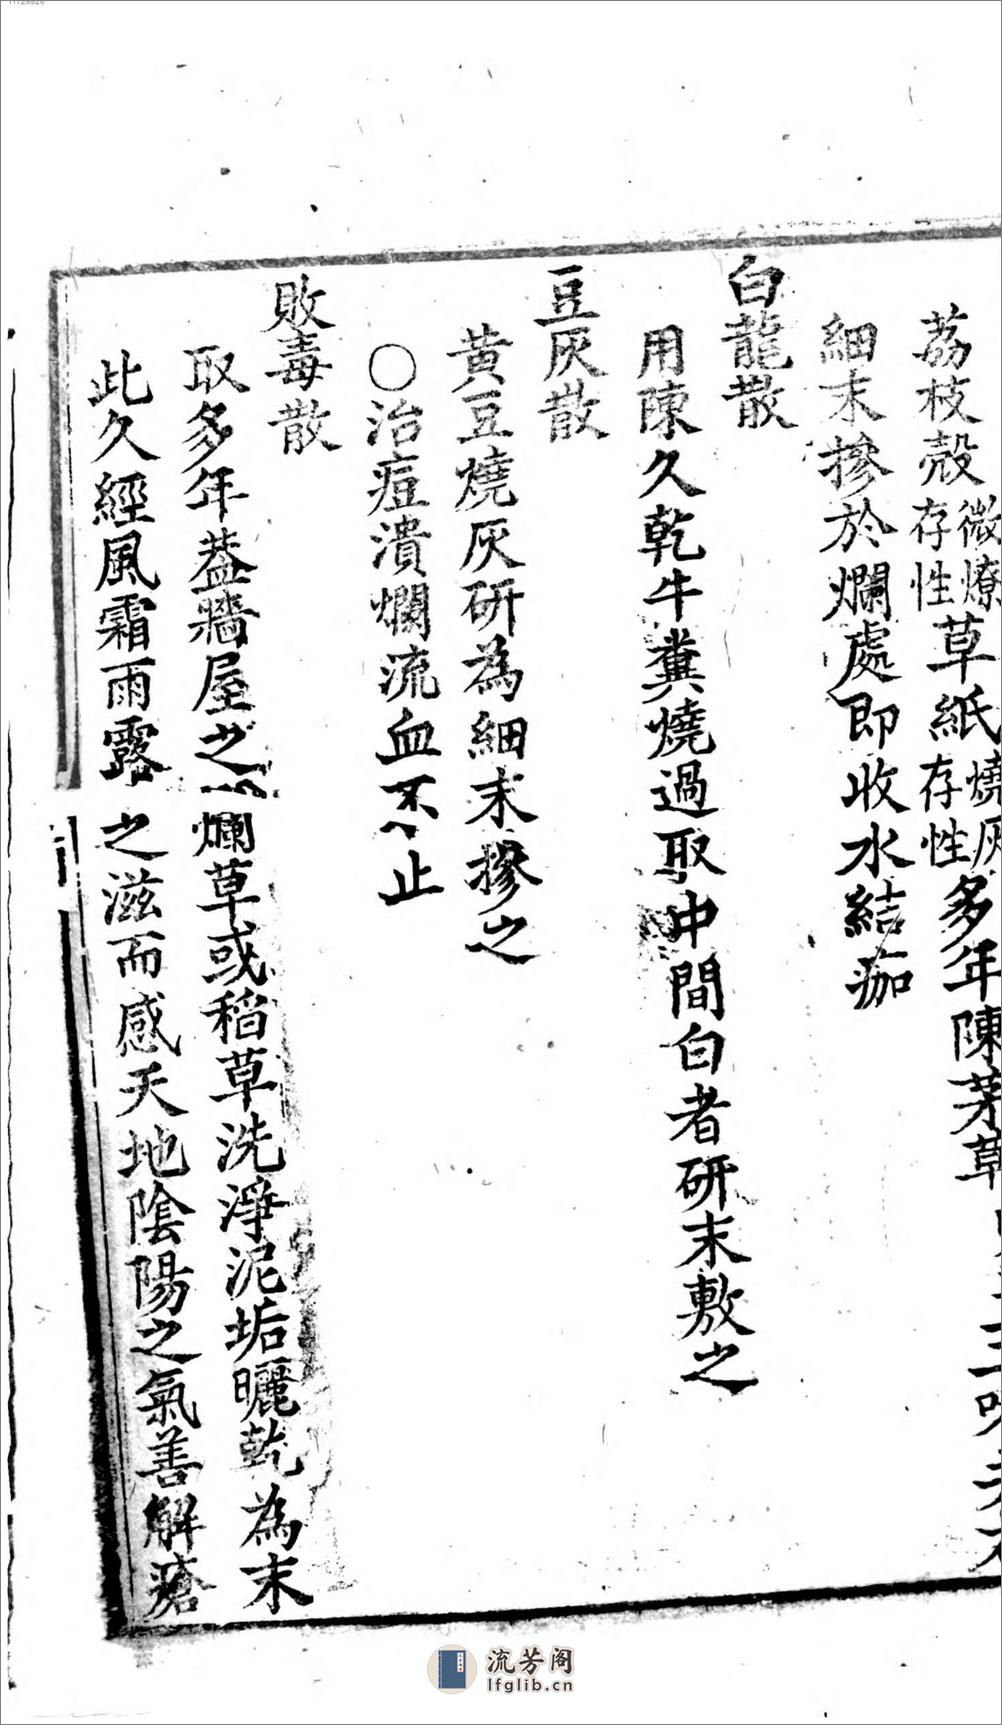 荔枝殼微燎存性草紙燒灰存性多年陳茅草
細末摻於爛處即收水結痂
白龍散
用陳久乾牛糞燒過取中間白者研末敷之
豆灰散
黄豆燒灰研為細末摻之
○治痘潰爛流血不止
敗毒散
取多年葢牆屋之爛草或稻草洗淨泥垢曬乾為末
此久經風霜雨露之滋而感天地陰陽之氣善解瘡
流芳阁
lfglib.cn